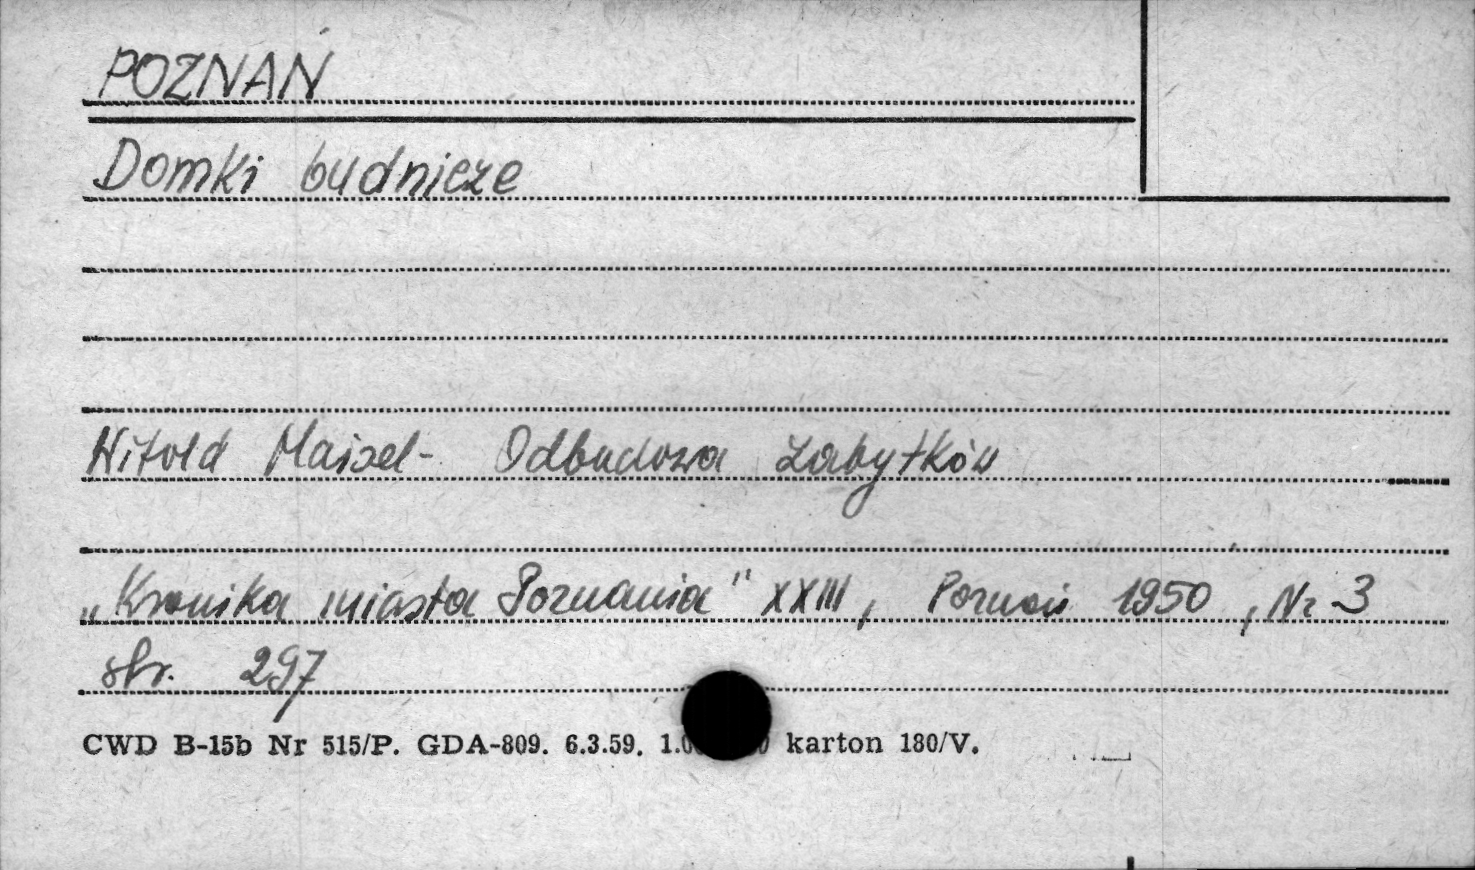 POZNAŃ
Domki budnicze
Witold Maisel - Odbudowa zabytków
„Kronika miasta Poznania" XXIII, Poznań 1950, Nr 3
str. 297
CWD B-15b Nr 515/P. GDA-809. 6.3.59. karton 180/V.